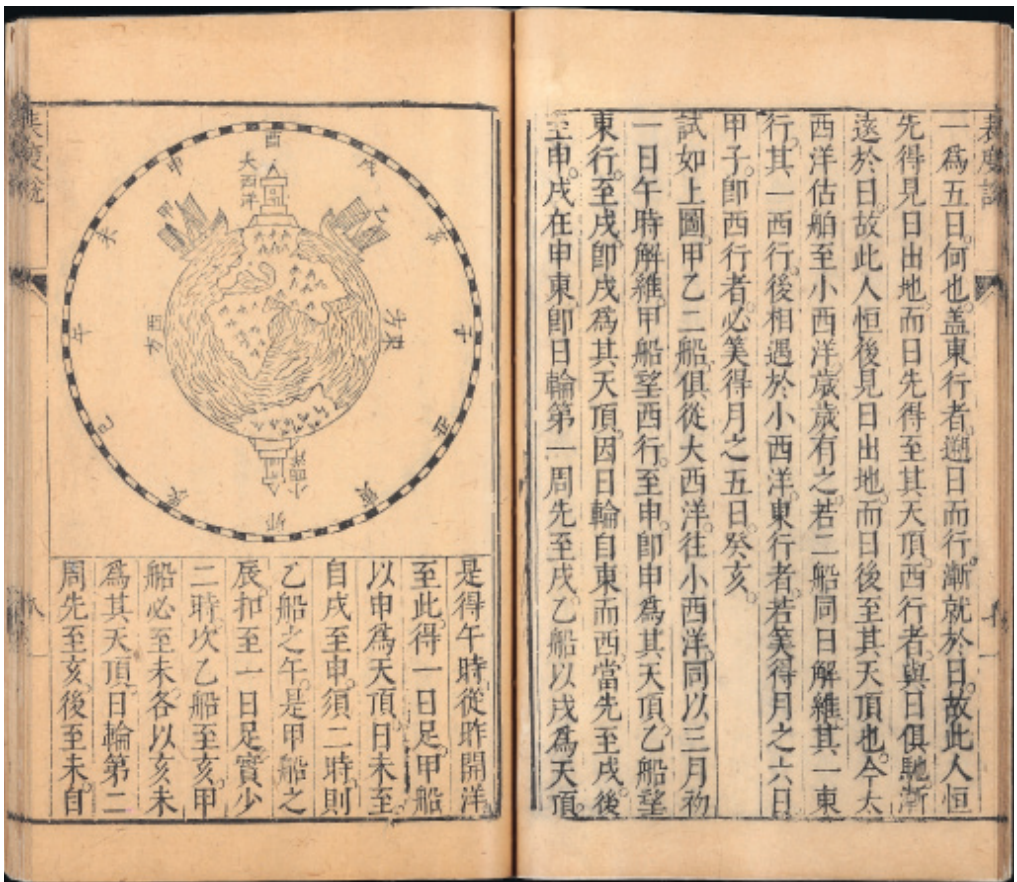 表度說
一爲五日何也。蓋東行者遡日而行漸就於日。故此人恒
先得見日出地而日先得至其天頂。西行者與日俱馳漸
遠於日。故此人恒後見日出地而日後至其天頂也。今大
西洋估舶至小西洋歲歲有之。若二船同日解維其一東
行其一西行後相遇於小西洋。東行者若筭得月之六日
甲子。卽西行者必筭得月之五日癸亥。
試如上圖甲乙二船俱從大西洋往小西洋。同以三月初
一日午時解維。甲船望西行至申卽申爲其天頂。乙船望
東行至戌卽戌爲其天頂。因日輪自東而西當先至戌。後
至申。戌在申東卽日輪第一周先至戌乙船以戌爲天頂。
大西洋
酉
戌
亥
子
丑
寅
卯
辰
巳
午
未
申
東方
西方
小西洋
是得午時從昨開洋
至此得一日足。甲船
以申爲天頂日未至
自戌至申須二時則
乙船之午是甲船之
辰扣至一日足實少
二時次乙船至亥甲
船必至未各以亥未
爲其天頂。日輪第二
周先至亥。後至未。自
表度說
八